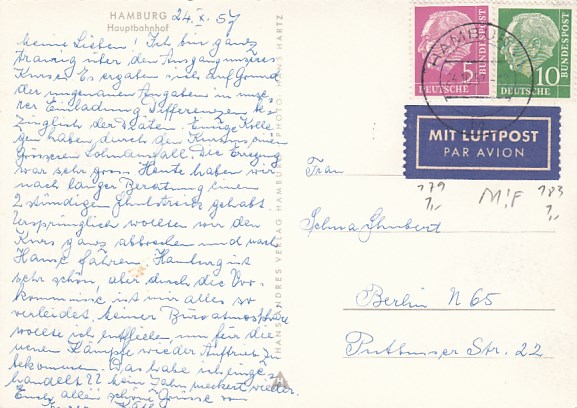 HAMBURG
Hauptbahnhof
24. X. 57
Meine Lieben! Ich bin ganz
traurig über den Ausgang unseres
Kurses. Es ergaben sich auf Grund
der ungenauen Angaben in unse-
rer Einladung Differenzen be-
züglich der Diäten. Einige Kolle-
gen haben durch den Kursus einen
grösseren Lohnausfall. Die Erregung
war sehr gross. Heute haben wir
nach langer Beratung einen
2 stündigen gehabt.
Ursprünglich wollten wir den
Kurs ganz abbrechen und nach
Hause fahren. Hamburg ist
sehr schön, aber durch die Vor-
kommnisse ist mir alles so
verleidet. Meiner Büroatmosphäre
wollte ich entfliehen, um für die
neuen Kämpfe wieder Auftrieb zu
bekommen. Das habe ich einge-
handelt?? Kein Zahn meckert wieder.
Euch allen schöne Grüsse von
HANS ANDRES VERLAG HAMBURG
PHOTO HANS HARTZ
HAMBURG
5
DEUTSCHE BUNDESPOST
10
DEUTSCHE BUNDESPOST
MIT LUFTPOST
PAR AVION
179
1,-
MiF
183
1,-
Frau
Selma Schubert
Berlin N 65
Putbusser Str. 22